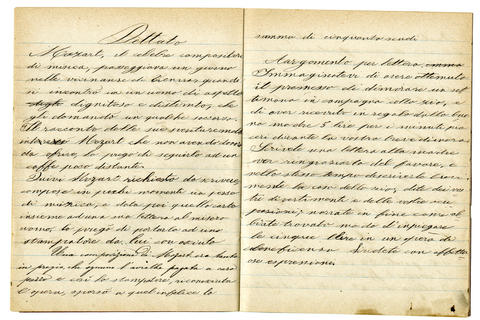 Dettato
Mozart, il celebre compositore
di musica, passeggiava un giorno
nelle vicinanze di Vienna quando
si incontrò in un uomo di aspetto
dignitoso e distinto, che
gli domandò un qualche soccorso.
Il racconto delle sue sventure
Mozart che non avendo
da offrirgli, lo pregò di seguirlo ad un
caffè poco distante.
Quivi Mozart richiesto da scrivere,
compose in pochi momenti un pezzo
di musica, e data poi quella carta
insieme ad una sua lettera al misero
uomo, lo pregò di portarlo ad uno
stampatore da lui conosciuto
Una composizione di Mozart era tenuta
in pregio, che ognuno l'avrebbe pagata a caro
prezzo e così lo stampatore, riconosciuta
l'opera, sborsò a quel infelice la
somma di cinquanta scudi
Argomento per lettera
Immaginatevi di avere ottenuto
il permesso di dimorare una set
timana in campagna collo zio, e
di aver ricevuto in regalo dalla buo
na madre 5 lire per i minuti pia
ceri durante la vostra
Scrivete una lettera alla madre
per ringraziarla del favore, e
nello stesso tempo descrivete breve
mente la casa dello zio, dite dei vo
stri divertimenti e delle vostre occu
pazioni; narrate in fine come ab
biate trovato modo d'impiegare
le cinque lire in un'opera di
beneficenza. Siate con affettu
ose espressioni.